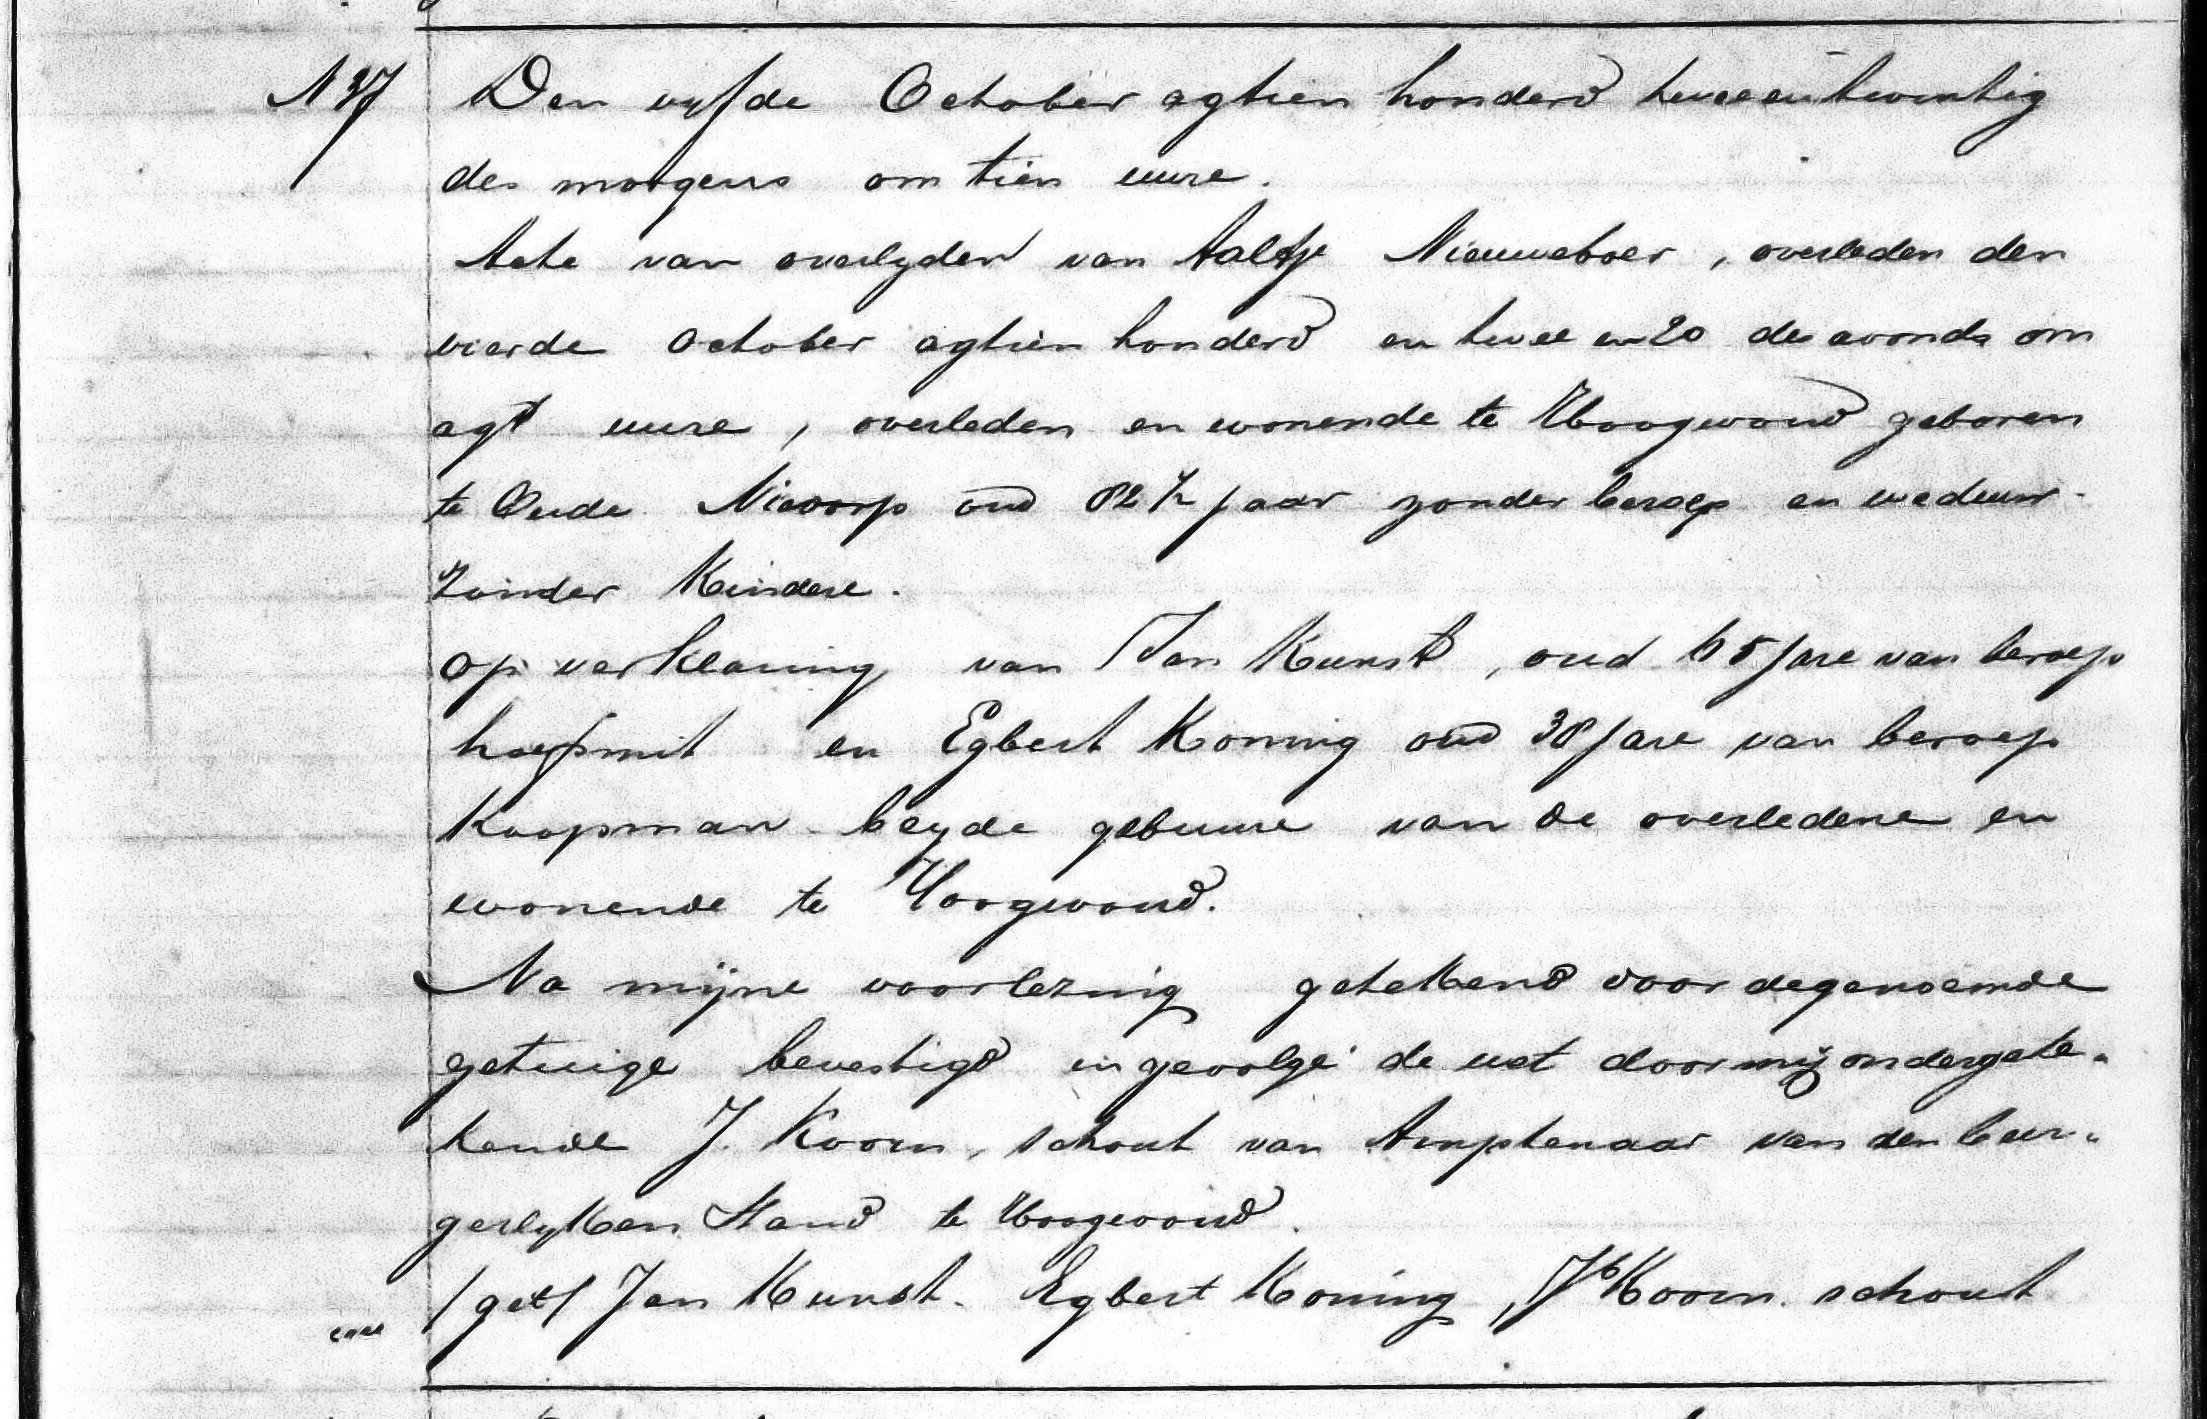 N 37 Den vyfde October agtien honderd tweeentwintig
des morgens om tien uure.
Acte van overlyden van Aaltje Nieuweboer, overleden den
vierde October agtien honderd en twee en 20 des avonds om
agt uure, overleden en wonende te Hoogwoud geboren
te Oude Nieorp oud 82 ½ jaar zonder beroep en weduwe
Zonder Kindere.
op verklaring van Jan Kunst, oud 65 jare van beroep
hoefsmit en Egbert Koning oud 38 jare van beroep
Koopman beyde gebuure van de overledene en
wonende te Hoogwoud.
Na mijne voorlezing getekend voor degenoemde
getuige bevestigd ingevolge de wet door mij ondergete-
kende J. Koorn, schout van Amptenaar van den bur-
gerlyken Stand te Hoogwoud.
/get/ Jan Kunst. Egbert Koning, Jb Koorn. schout